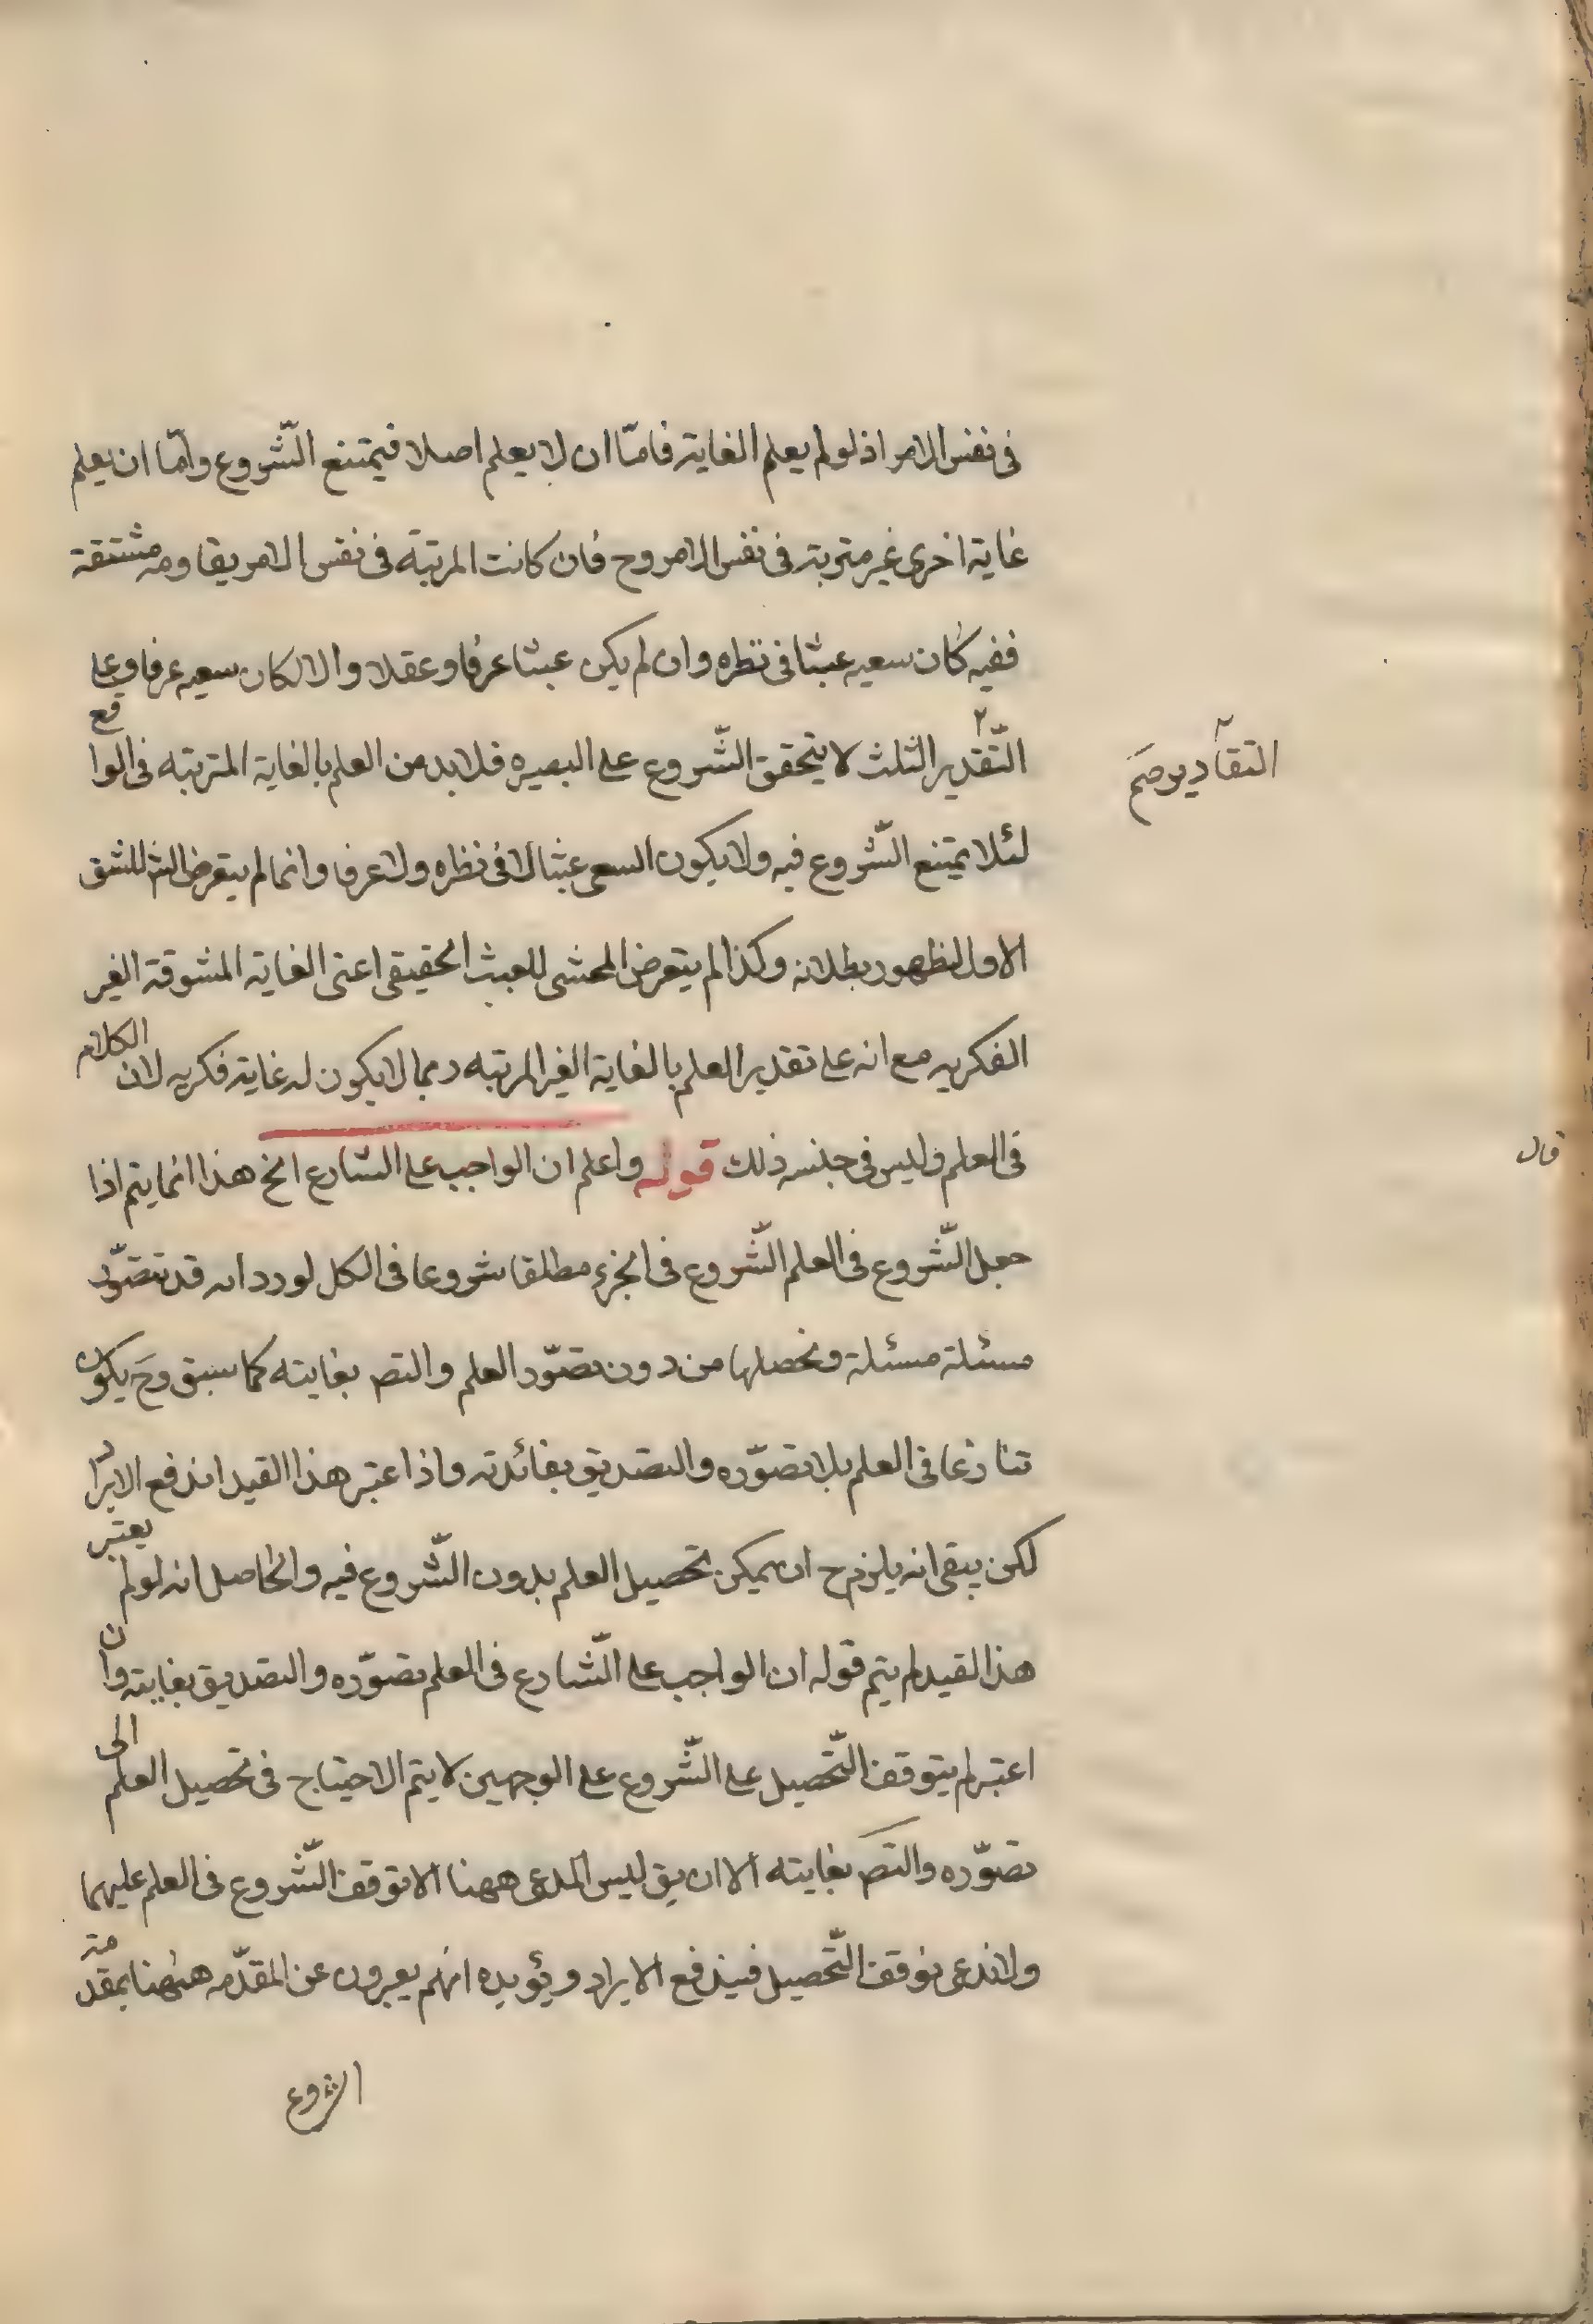 فى نفس الامر اذ لو لم يعلم الغاية فامّا ان لا يعلم اصلا فيمتنع الشّروع وامّا ان يعلم
غاية اخرى غير مترتبة فى نفس الامر وح فان كانت المرتبة فى نفس الامر يقاومه مشتقة
ففيه كان سعيه عبثا فى نظره وان لم يكن عبثا عرفا وعقلا والا لكان سعيه عرفا وعلى
التّقدير الثلث لا يتحقق الشّروع على البصيره فلابد من العلم بالغاية المترتبه فى الواقع
التقادير صح
لئلا يمتنع الشّروع فيه ولا يكون السعى عبثا لا فى نظره ولا عرفا وانما لم يتعرض الش للشق
الاول لظهور بطلانه وكذا لم يتعرض المحشى للعبث الحقيقى اعنى الغاية المشوقة الغير
الفكريه مع انه على تقدير العلم بالغاية الغير المرتبه ربما لا يكون له غاية فكريه لان الكلام
فى العلم وليس فى جنسه ذلك قوله واعلم ان الواجب على الشارع الخ هذا انما يتم اذا
قال
جعل الشّروع فى العلم الشّروع فى الجزء مطلقا شروعا فى الكل لورد انه قد نتصوّر
مسئلة مسئلة ونحصلها من دون تصوّر العلم والتص بغايته كما سبق وح يكون
شارعا فى العلم بلا تصوّره والتصديق بفائدته واذا اعتبر هذا القيد اندفع الايراد
لكن يبقى انه يلزم ح ان يمكن تحصيل العلم بدون الشّروع فيه والحاصل انه لو لم يعتبر
هذا القيد لم يتم قوله ان الواجب على الشّارع فى العلم تصوّره والتصديق بغايته وان
اعتبر لم يتوقف التّحصيل على الشّروع على الوجهين لا يتم الاحتياج فى تحصيل العلم الى
تصوّره والتص بغايته الا ان يق ليس المدعى ههنا الا توقف الشّروع فى العلم عليهما
ولا ندعى توقف التّحصيل فيندفع الايراد ويؤيده انهم يعبرون عن المقدّمه ههنا بمقدمة
الشروع